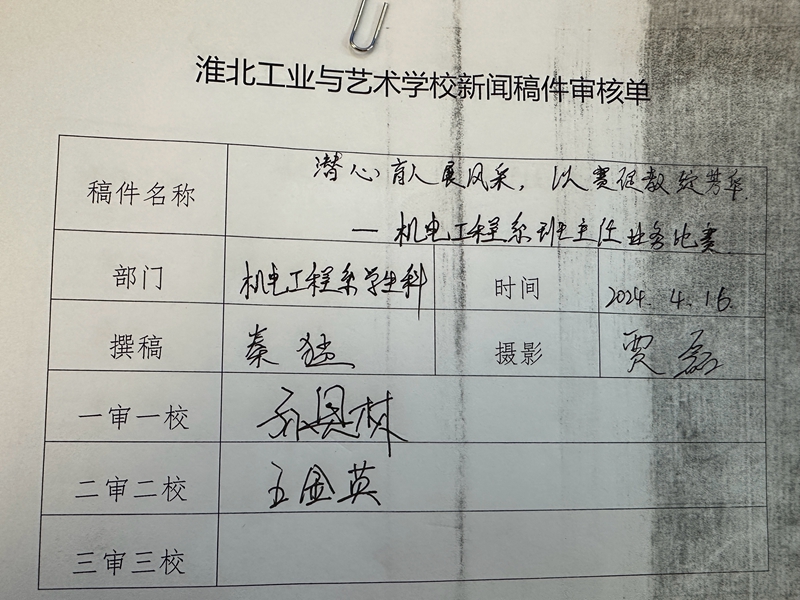 淮北工业与艺术学校新闻稿件审核单
稿件名称 潜心育人展风采，以赛促教绽芳华
— 机电工程系班主任业务比赛
部门 机电工程系学生科 时间 2024.4.16.
撰稿 秦 摄影 贾磊
一审一校 林
二审二校 王金英
三审三校